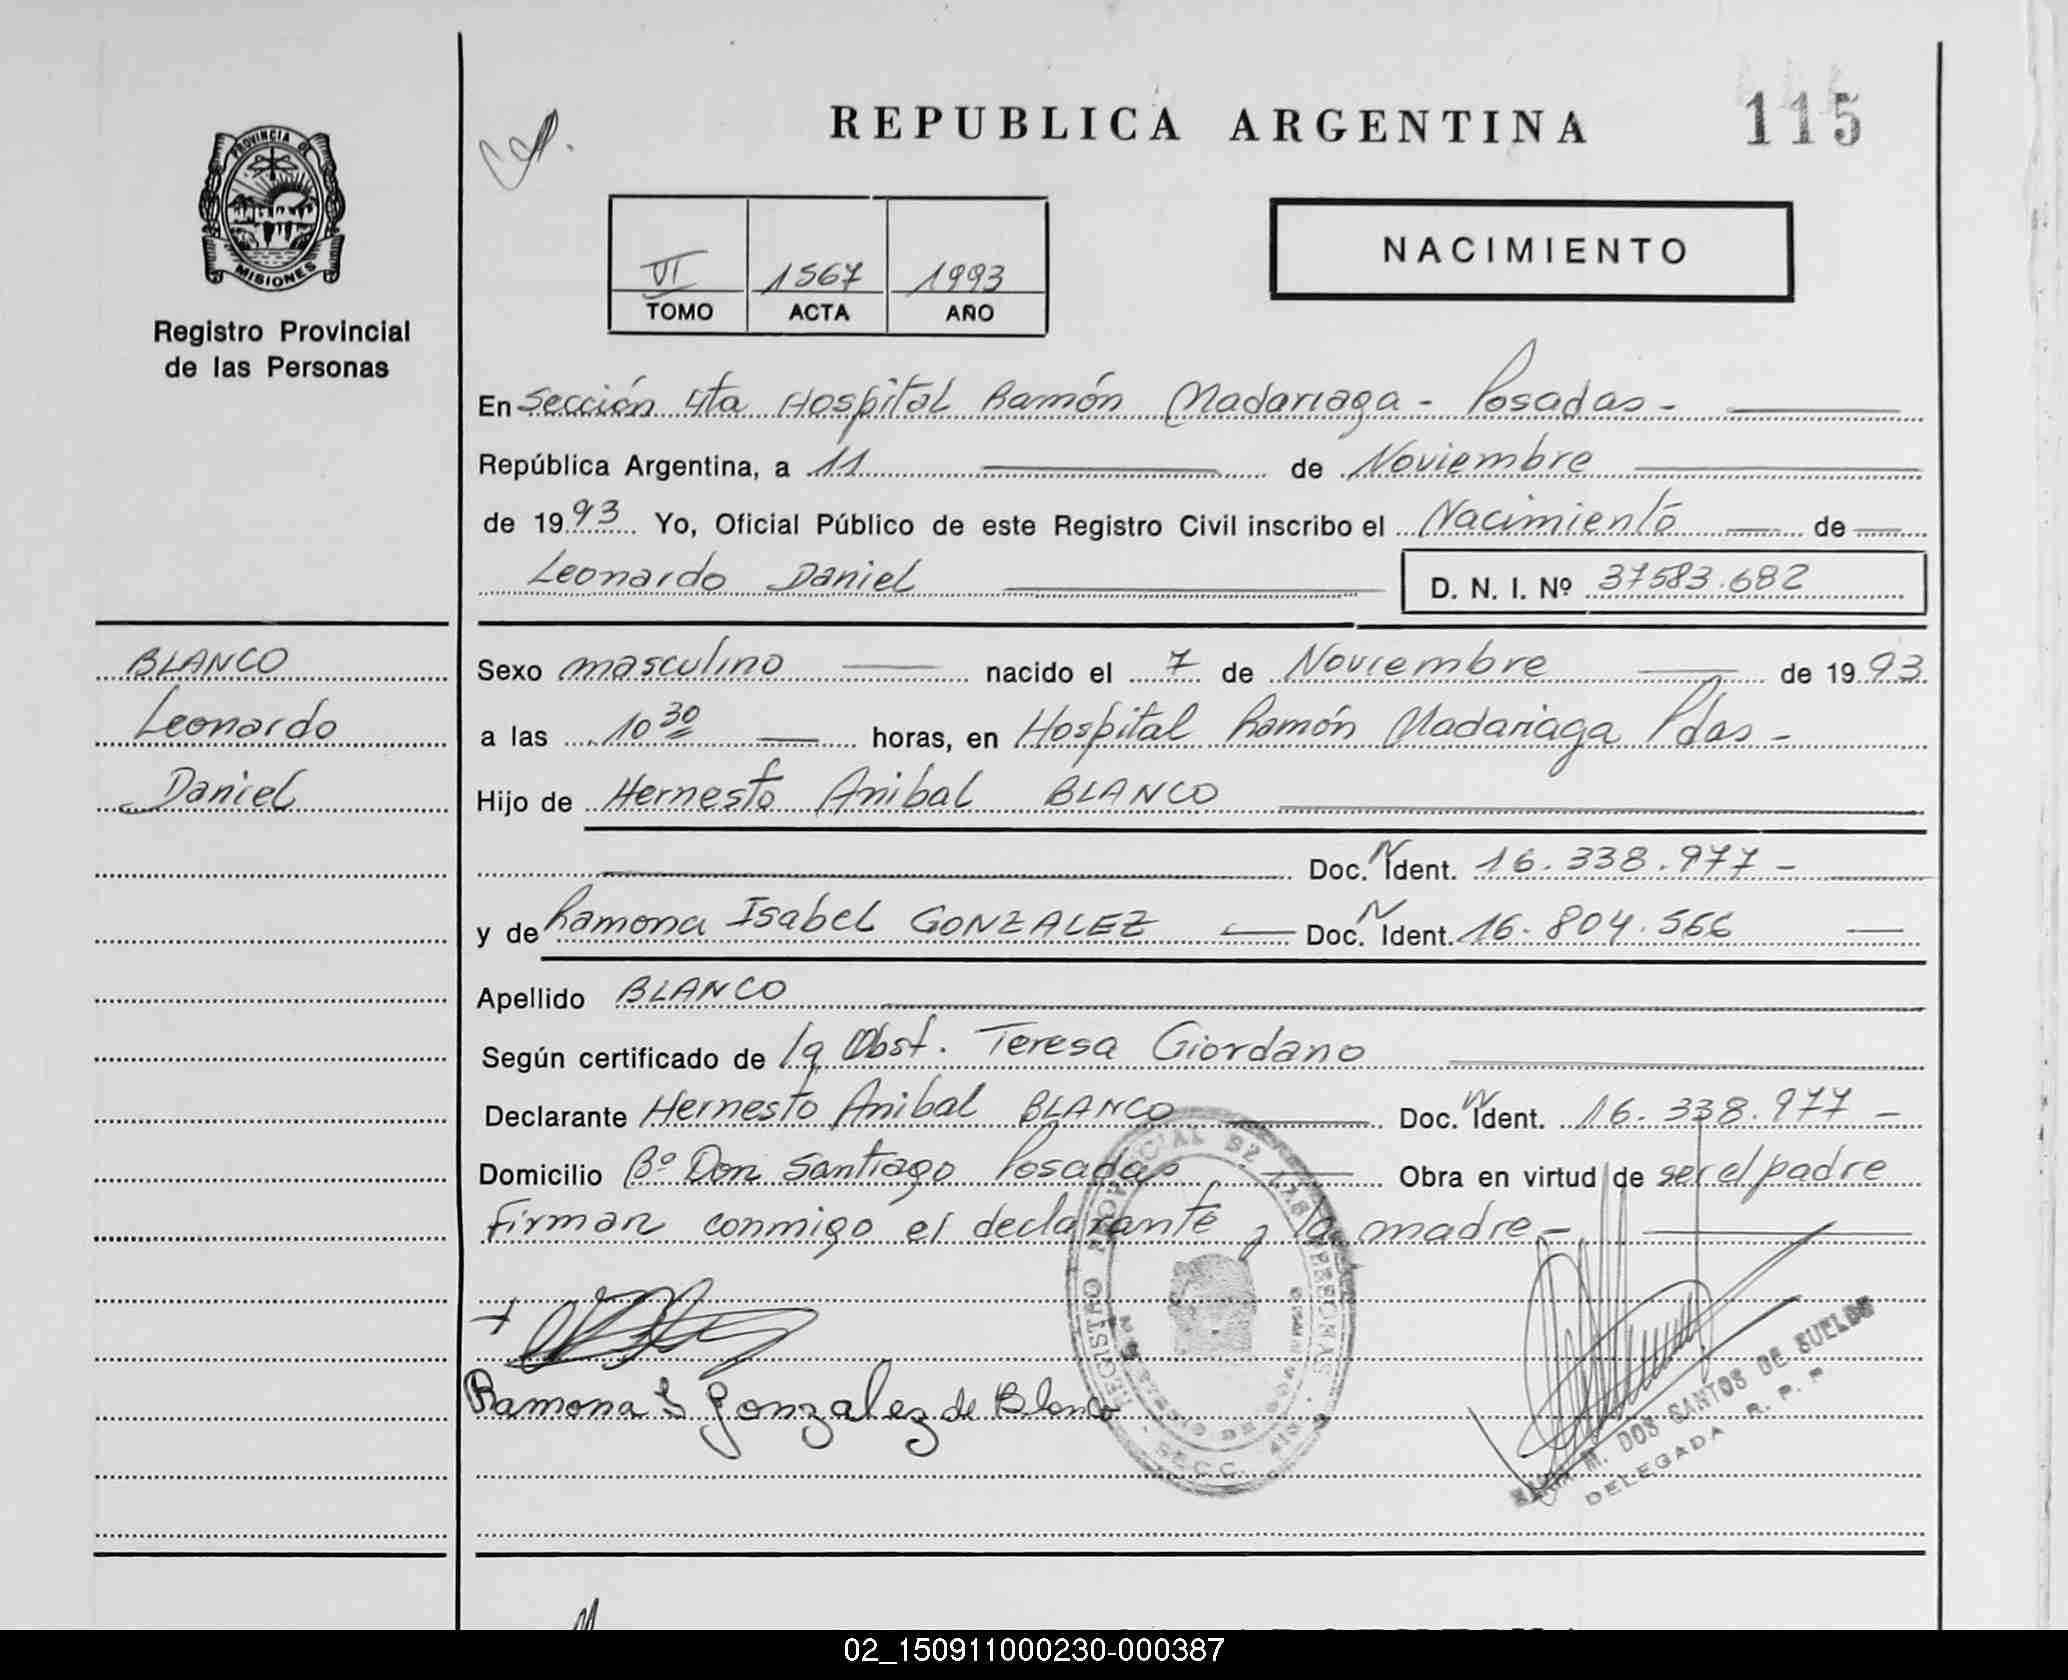 REPUBLICA ARGENTINA
115
PROVINCIA DE
MISIONES
Registro Provincial
de las Personas
VI 1567 1993
TOMO ACTA AÑO
NACIMIENTO
En Sección 4ta Hospital Ramón Madariaga - Posadas -
República Argentina, a 11 de Noviembre
de 1993 Yo, Oficial Público de este Registro Civil inscribo el Nacimiento de
Leonardo Daniel D. N. I. Nº 37583.682
BLANCO
Leonardo
Daniel
Sexo masculino nacido el 7 de Noviembre de 1993
a las 10 30 horas, en Hospital Ramón Madariaga Pdas -
Hijo de Hernesto Anibal BLANCO
Doc. N Ident. 16.338.977 -
y de Ramona Isabel GONZALEZ Doc. N Ident. 16.804.566
Apellido BLANCO
Según certificado de la Obst. Teresa Giordano
Declarante Hernesto Anibal BLANCO Doc. N Ident. 16.338.977 -
Domicilio Bº Don Santiago Posadas Obra en virtud de ser el padre
Firman conmigo el declarante y la madre -
Ramona I Gonzalez de Blanco
REGISTRO PROVINCIAL DE LAS PERSONAS
SECC.
M. DOS SANTOS DE SUELDO
DELEGADA R. P. P.
02_150911000230-000387